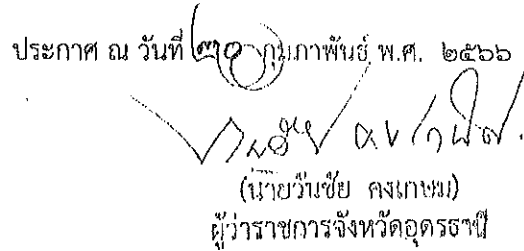 ประกาศ ณ วันที่ ๒๐ กุมภาพันธ์ พ.ศ. ๒๕๖๖
(นายวันชัย คงเกษม)
ผู้ว่าราชการจังหวัดอุดรธานี